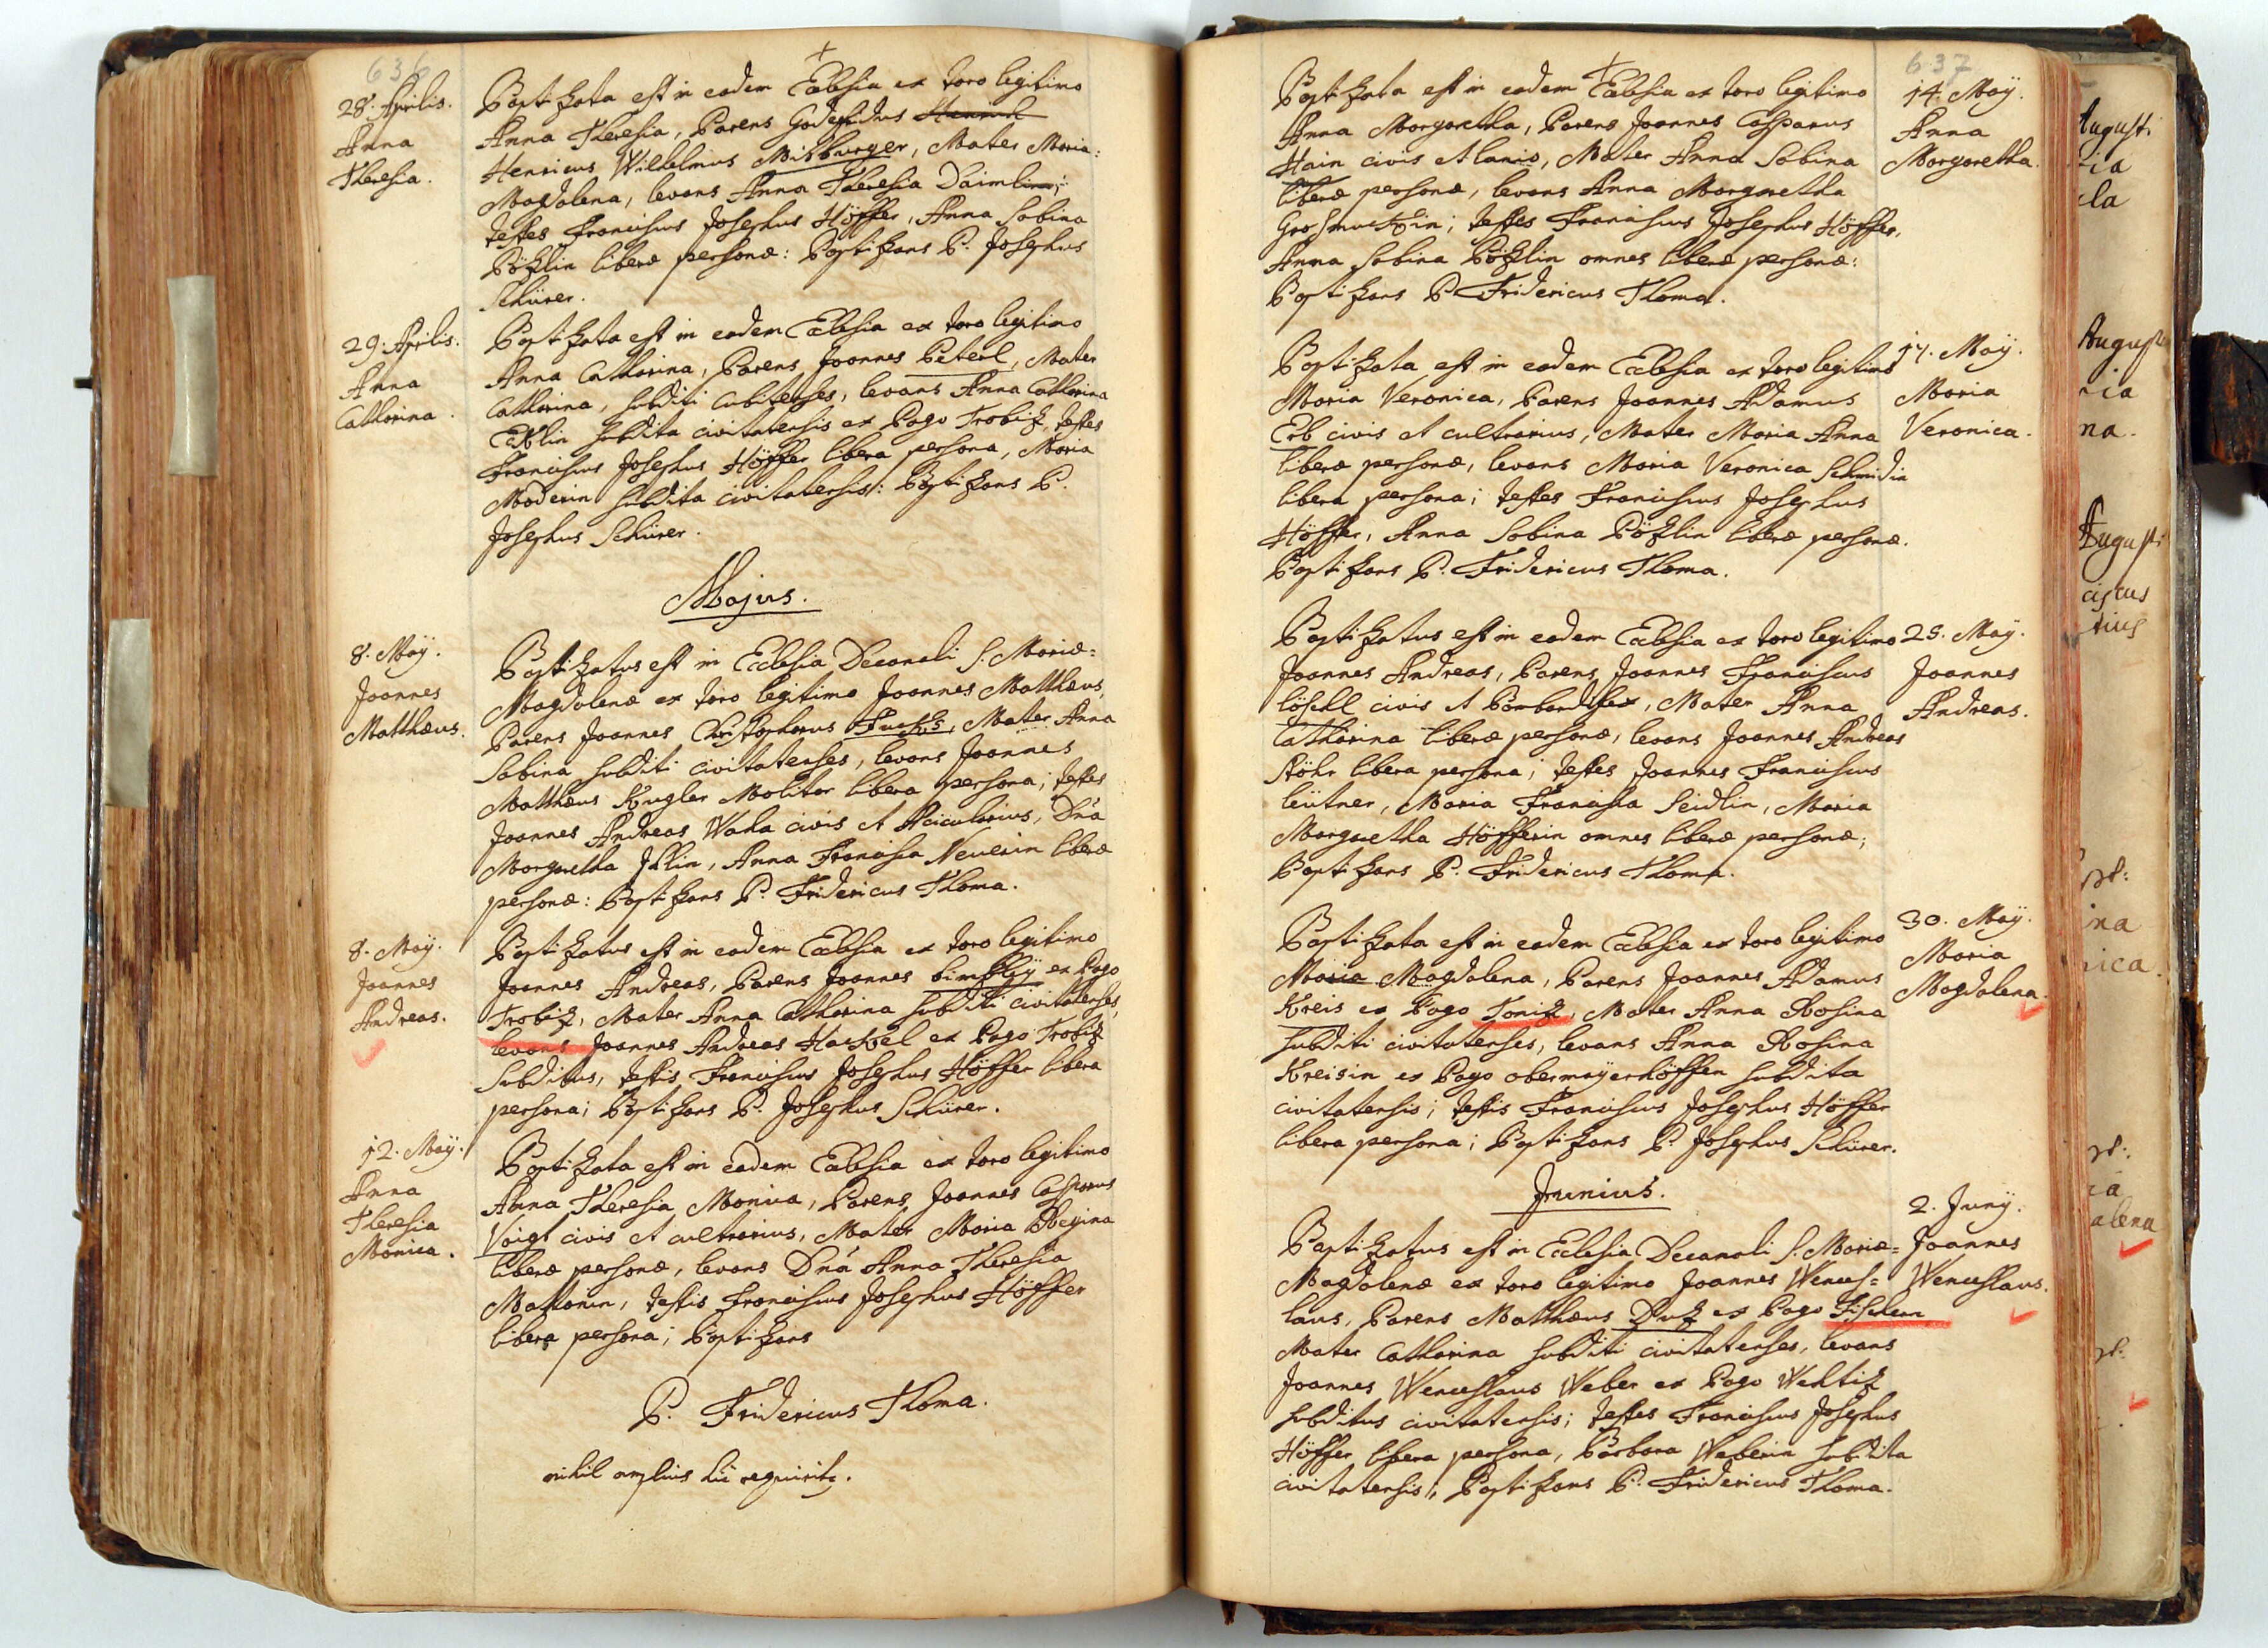 636
28. Aprilis.
Anna
Theresia.
Baptizata est in eadem Ecclesia ex toro legitimo
Anna Theresia, Parens Godefridus Henrich
Henricus Wilhelmus Misburger, Mater Maria=
Magdalena, levans Anna Theresia Daimlin;
testes Franciscus Josephus Höffer, Anna Sabina
Pözlin liberæ personæ: Baptizans P. Josephus
Schürer.
29. Aprilis.
Anna
Catharina.
Baptizata est in eadem Ecclesia ex toro legitimo
Anna Catharina, Parens Joannes Peterl, Mater
Catharina, subditi Cubitenses, levans Anna Catharina
subdita civitatensis ex Pago Trobiz, testes
Franciscus Josephus Höffer libera persona, Maria
Moderin subdita civitatensis: Baptizans P.
Josephus Schürer.
Majus.
8. Maÿ.
Joannes
Matthæus.
Baptizatus est in Ecclesia Decanali S. Mariæ=
Magdalenæ ex toro legitimo Joannes Matthæus,
Parens Joannes Christophorus Fuchs, Mater Anna
Sabina subditi civitatenses, levans Joannes
Matthæus Kugler Molitor libera persona; testes
Joannes Andreas Waha civis et Acicularius, Dña
Margaretha Illin, Anna Francisca Neuerin liberæ
personæ: Baptizans P. Fridericus Thoma.
8. Maÿ.
Joannes
Andreas.
Baptizatus est in eadem Ecclesia ex toro legitimo
Joannes Andreas, Parens Joannes ex Pago
Trobiz, Mater Anna Catharina subditi civitatenses,
levans Joannes Andreas Hackel ex Pago Trobiz
subditus, testis Franciscus Josephus Höffer libera
persona; Baptizans P. Josephus Schürer.
12. Maÿ.
Anna
Theresia
Monica.
Baptizata est in eadem Ecclesia ex toro legitimo
Anna Theresia Monica, Parens Joannes Casparus
Voigt civis et cultrarius, Mater Maria Regina
liberæ personæ, levans Dña Anna Theresia
Mattonin, testis Franciscus Josephus Höffer
libera persona; Baptizans
P. Fridericus Thoma.
nihil amplius hic requirite.
637
14. Maÿ.
Anna
Margaretha.
Baptizata est in eadem Ecclesia ex toro legitimo
Anna Margaretha, Parens Joannes Casparus
Hain civis et lanio, Mater Anna Sabina
liberæ personæ, levans Anna Margaretha
Grosmuckin; testes Franciscus Josephus Höffer,
Anna Sabina Pözlin omnes liberæ personæ:
Baptizans P. Fridericus Thoma.
17. Maÿ.
Maria
Veronica.
Baptizata est in eadem Ecclesia ex toro legitimo
Maria Veronica, Parens Joannes Adamus
Erb civis et cultrarius, Mater Maria Anna
liberæ personæ, levans Maria Veronica Schmidin
libera persona; testes Franciscus Josephus
Höffer, Anna Sabina Pözlin liberæ personæ.
Baptizans P. Fridericus Thoma.
25. Maÿ.
Joannes
Andreas.
Baptizatus est in eadem Ecclesia ex toro legitimo
Joannes Andreas, Parens Joannes Franciscus
löschl civis et Bombardifex, Mater Anna
Catharina liberæ personæ, levans Joannes Andreas
Stöhr libera persona; testes Joannes Franciscus
leütner, Maria Francisca Seidlin, Maria
Margaretha Höfferin omnes liberæ personæ;
Baptizans P. Fridericus Thoma.
30. Maÿ.
Maria
Magdalena.
Baptizata est in eadem Ecclesia ex toro legitimo
Maria Magdalena, Parens Joannes Adamus
Kreis ex Pago Toniz, Mater Anna Rosina
subditi civitatenses, levans Anna Rosina
Kreisin ex Pago obermaÿerhöffen subdita
civitatensis; testis Franciscus Josephus Höffer
libera persona; Baptizans P. Josephus Schürer.
Junius.
2. Junÿ.
Joannes
Wenceslaus.
Baptizatus est in Ecclesia Decanali S. Mariæ=
Magdalenæ ex toro legitimo Joannes Wences=
laus, Parens Matthæus Duz ex Pago Fischern
Mater Catharina subditi civitatenses, levans
Joannes Wenceslaus Weber ex Pago Wehtiz
subditus civitatensis; testes Franciscus Josephus
Höffer libera persona, Barbara Weberin subdita
civitatensis; Baptizans P. Fridericus Thoma.